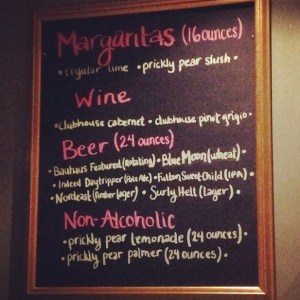 Margaritas (16 ounces)
• regular lime • prickly pear slush •
Wine
• clubhouse cabernet • clubhouse pinot grigio •
Beer (24 ounces)
Bauhaus Featured (Rotating) • Blue Moon (wheat) •
• Indeed Daytripper (Pale Ale) • Fulton Sweet Child (IPA)
• Nordeast (Amber Lager) • Surly Hell (lager)
Non-Alcoholic
• prickly pear lemonade (24 ounces)
• prickly pear palmer (24 ounces) •